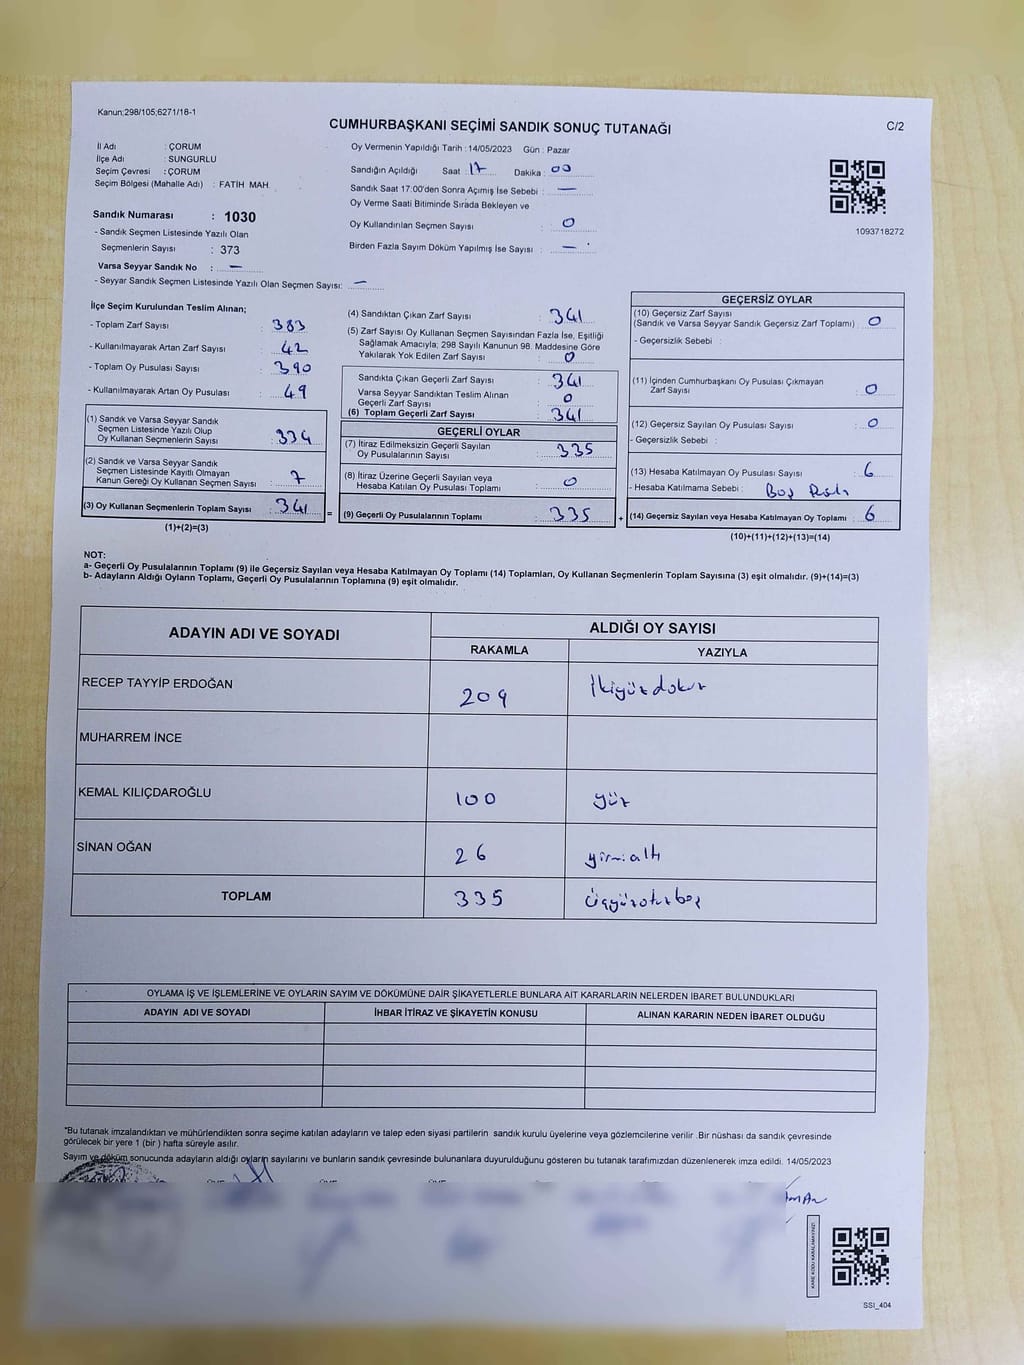 Kanun:298/105,6271/18-1
C/2
CUMHURBAŞKANI SEÇİMİ SANDIK SONUÇ TUTANAĞI
İl Adı : ÇORUM
İlçe Adı : SUNGURLU
Seçim Çevresi : ÇORUM
Seçim Bölgesi (Mahalle Adı) : FATİH MAH.
Sandık Numarası : 1030
- Sandık Seçmen Listesinde Yazılı Olan
Seçmenlerin Sayısı : 373
Varsa Seyyar Sandık No : —
- Seyyar Sandık Seçmen Listesinde Yazılı Olan Seçmen Sayısı: —
Oy Vermenin Yapıldığı Tarih : 14/05/2023 Gün : Pazar
Sandığın Açıldığı Saat : 17 Dakika : 00
Sandık Saat 17:00'den Sonra Açımış İse Sebebi : —
Oy Verme Saati Bitiminde Sırada Bekleyen ve
Oy Kullandırılan Seçmen Sayısı : 0
Birden Fazla Sayım Döküm Yapılmış İse Sayısı : —
1093718272
İlçe Seçim Kurulundan Teslim Alınan;
- Toplam Zarf Sayısı : 383
- Kullanılmayarak Artan Zarf Sayısı : 42
- Toplam Oy Pusulası Sayısı : 390
- Kullanılmayarak Artan Oy Pusulası : 49
(1) Sandık ve Varsa Seyyar Sandık
Seçmen Listesinde Yazılı Olup
Oy Kullanan Seçmenlerin Sayısı : 334
(2) Sandık ve Varsa Seyyar Sandık
Seçmen Listesinde Kayıtlı Olmayan
Kanun Gereği Oy Kullanan Seçmen Sayısı : 7
(3) Oy Kullanan Seçmenlerin Toplam Sayısı : 341 =
(1)+(2)=(3)
(4) Sandıktan Çıkan Zarf Sayısı : 341
(5) Zarf Sayısı Oy Kullanan Seçmen Sayısından Fazla İse, Eşitliği
Sağlamak Amacıyla; 298 Sayılı Kanunun 98. Maddesine Göre
Yakılarak Yok Edilen Zarf Sayısı : 0
Sandıkta Çıkan Geçerli Zarf Sayısı : 341
Varsa Seyyar Sandıktan Teslim Alınan
Geçerli Zarf Sayısı : 0
(6) Toplam Geçerli Zarf Sayısı : 341
GEÇERLİ OYLAR
(7) İtiraz Edilmeksizin Geçerli Sayılan
Oy Pusulalarının Sayısı : 335
(8) İtiraz Üzerine Geçerli Sayılan veya
Hesaba Katılan Oy Pusulası Toplamı : 0
(9) Geçerli Oy Pusulalarının Toplamı : 335 +
GEÇERSİZ OYLAR
(10) Geçersiz Zarf Sayısı
(Sandık ve Varsa Seyyar Sandık Geçersiz Zarf Toplamı) : 0
- Geçersizlik Sebebi :
(11) İçinden Cumhurbaşkanı Oy Pusulası Çıkmayan
Zarf Sayısı : 0
(12) Geçersiz Sayılan Oy Pusulası Sayısı : 0
- Geçersizlik Sebebi :
(13) Hesaba Katılmayan Oy Pusulası Sayısı : 6
- Hesaba Katılmama Sebebi : Boş
(14) Geçersiz Sayılan veya Hesaba Katılmayan Oy Toplamı : 6
(10)+(11)+(12)+(13)=(14)
NOT:
a- Geçerli Oy Pusulalarının Toplamı (9) ile Geçersiz Sayılan veya Hesaba Katılmayan Oy Toplamı (14) Toplamları, Oy Kullanan Seçmenlerin Toplam Sayısına (3) eşit olmalıdır. (9)+(14)=(3)
b- Adayların Aldığı Oyların Toplamı, Geçerli Oy Pusulalarının Toplamına (9) eşit olmalıdır.
ADAYIN ADI VE SOYADI ALDIĞI OY SAYISI
RAKAMLA YAZIYLA
RECEP TAYYİP ERDOĞAN 209 İkiyüzdokuz
MUHARREM İNCE
KEMAL KILIÇDAROĞLU 100 yüz
SİNAN OĞAN 26 yirmialtı
TOPLAM 335 üçyüzotuzbeş
OYLAMA İŞ VE İŞLEMLERİNE VE OYLARIN SAYIM VE DÖKÜMÜNE DAİR ŞİKAYETLERLE BUNLARA AİT KARARLARIN NELERDEN İBARET BULUNDUKLARI
ADAYIN ADI VE SOYADI İHBAR İTİRAZ VE ŞİKAYETİN KONUSU ALINAN KARARIN NEDEN İBARET OLDUĞU
"Bu tutanak imzalandıktan ve mühürlendikten sonra seçime katılan adayların ve talep eden siyasi partilerin sandık kurulu üyelerine veya gözlemcilerine verilir .Bir nüshası da sandık çevresinde
görülecek bir yere 1 (bir ) hafta süreyle asılır.
Sayım ve döküm sonucunda adayların aldığı oyların sayılarını ve bunların sandık çevresinde bulunanlara duyurulduğunu gösteren bu tutanak tarafımızdan düzenlenerek imza edildi. 14/05/2023
KARE KODU KARALAMAYINIZ!
SSI_404